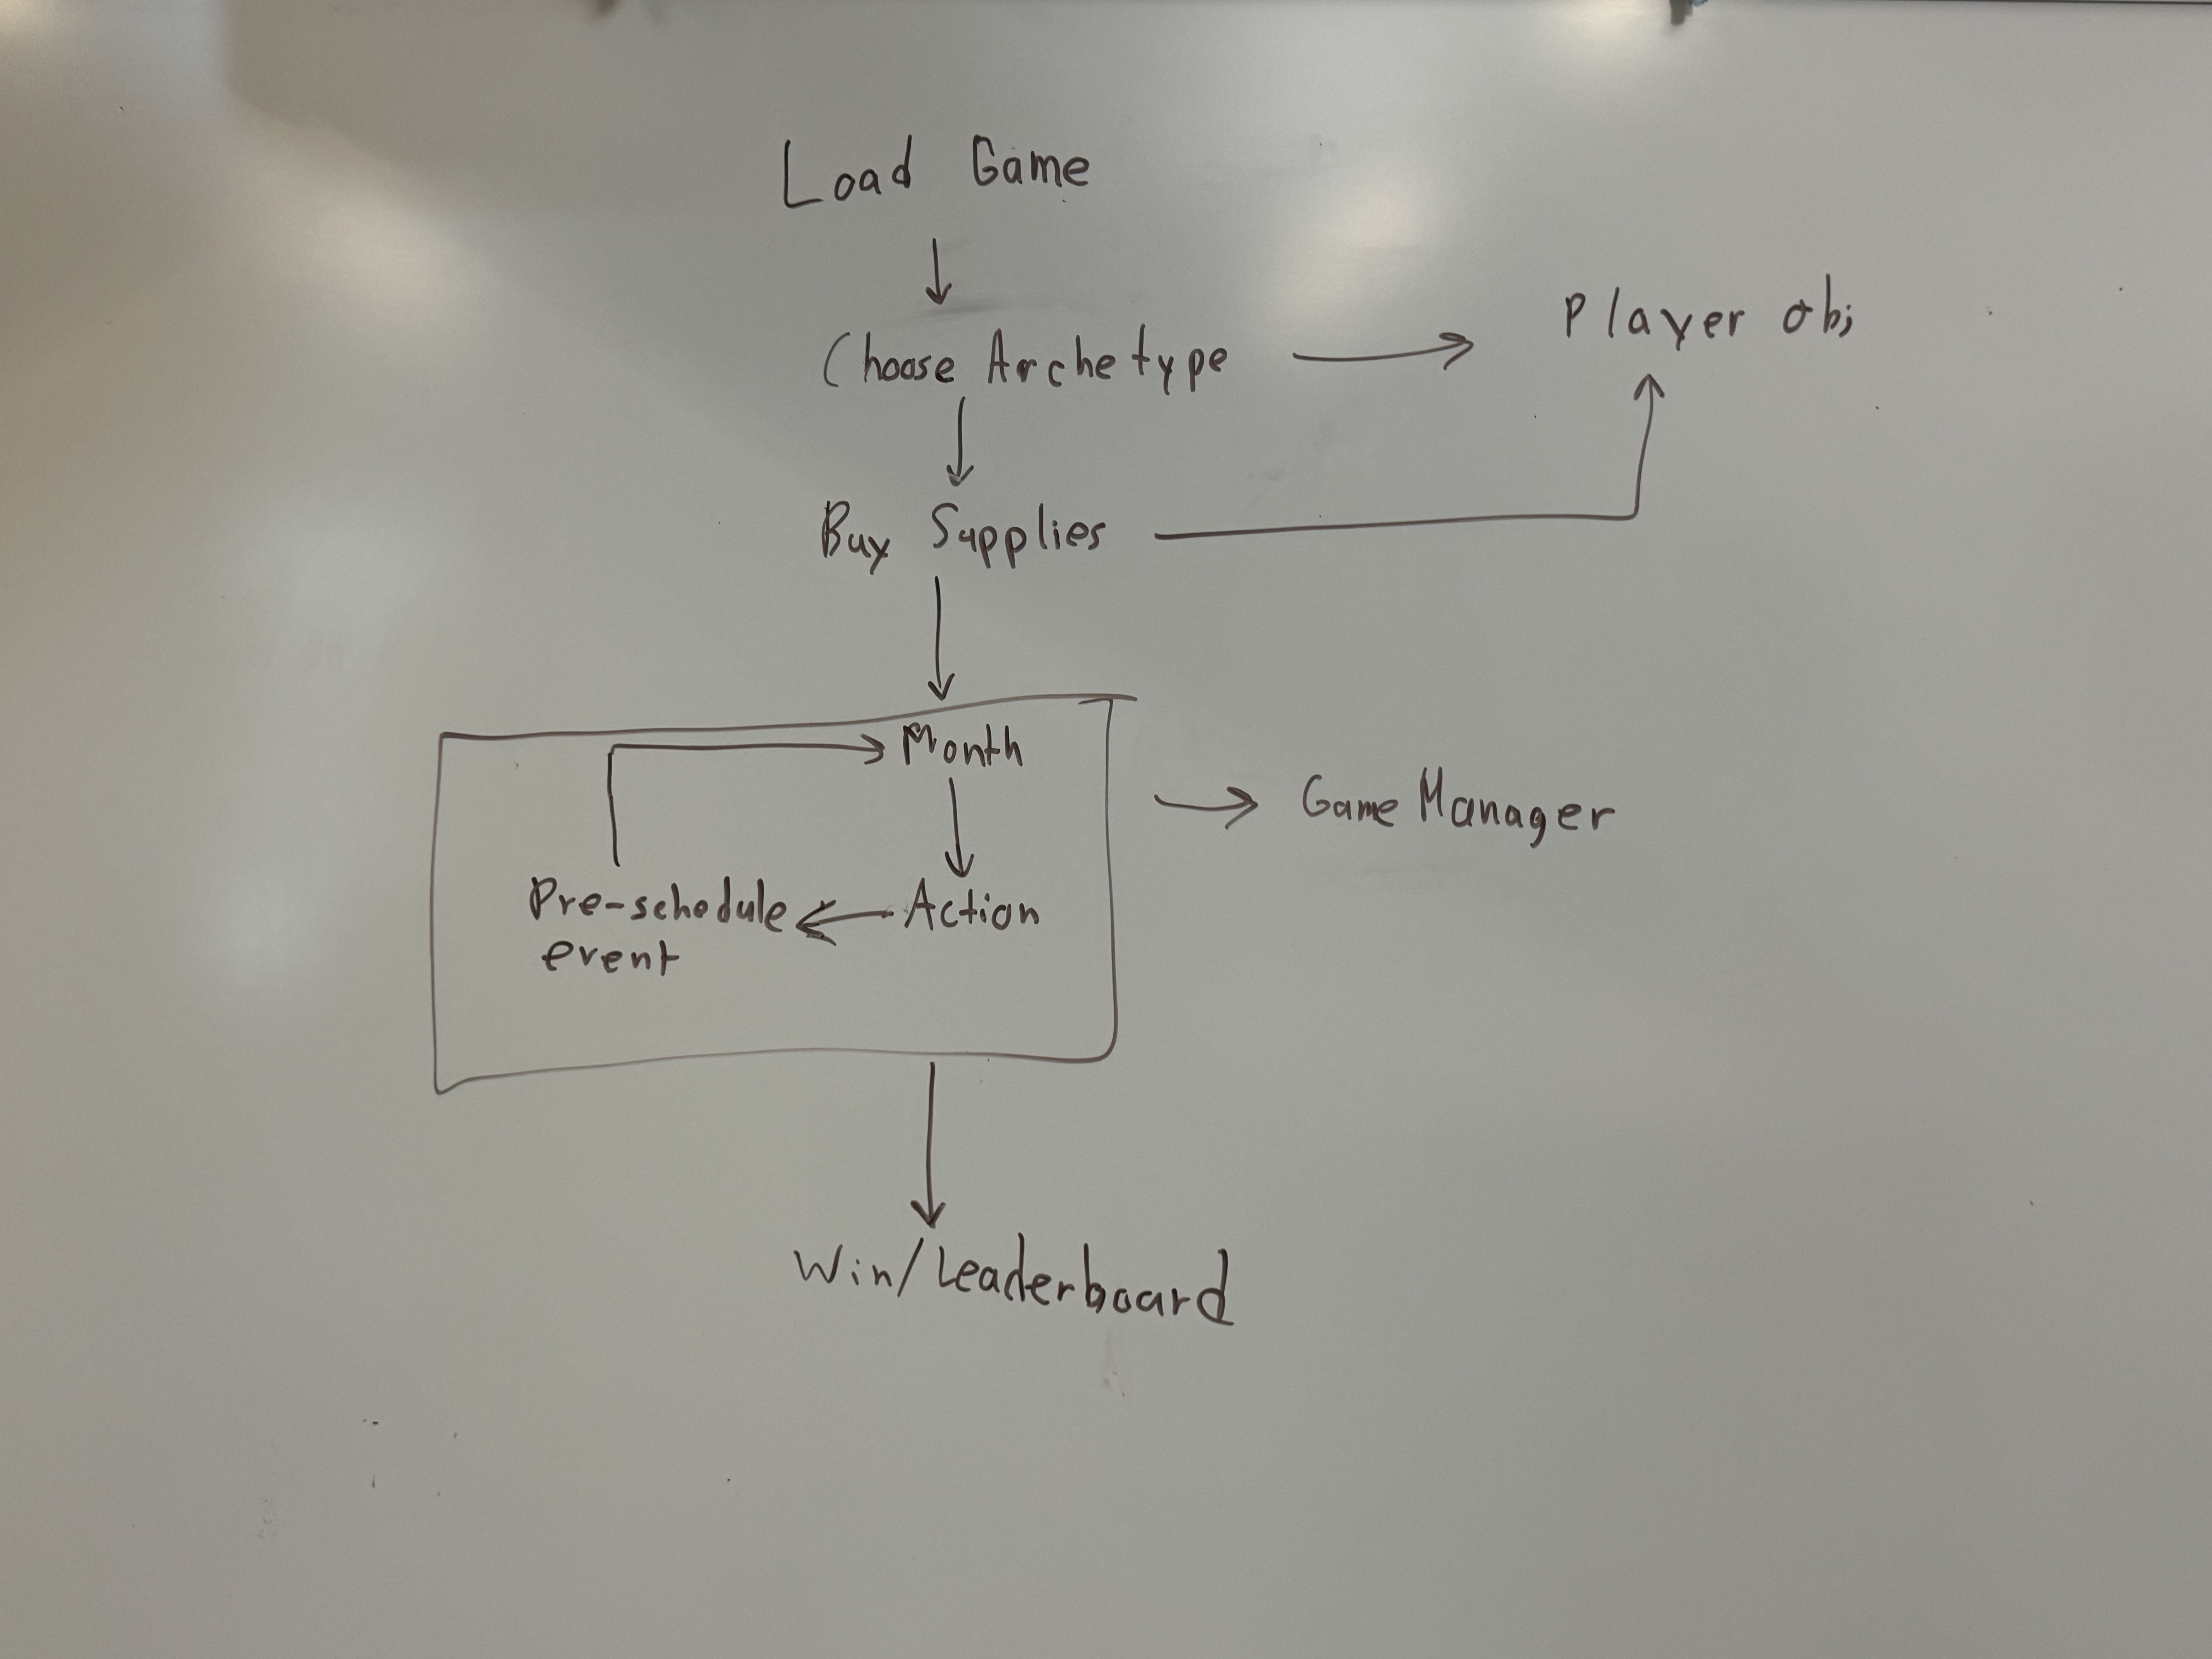 Load Game
Choose Archetype
Player obj
Buy Supplies
Month
Game Manager
Pre-schedule
event
Action
Win/Leaderboard